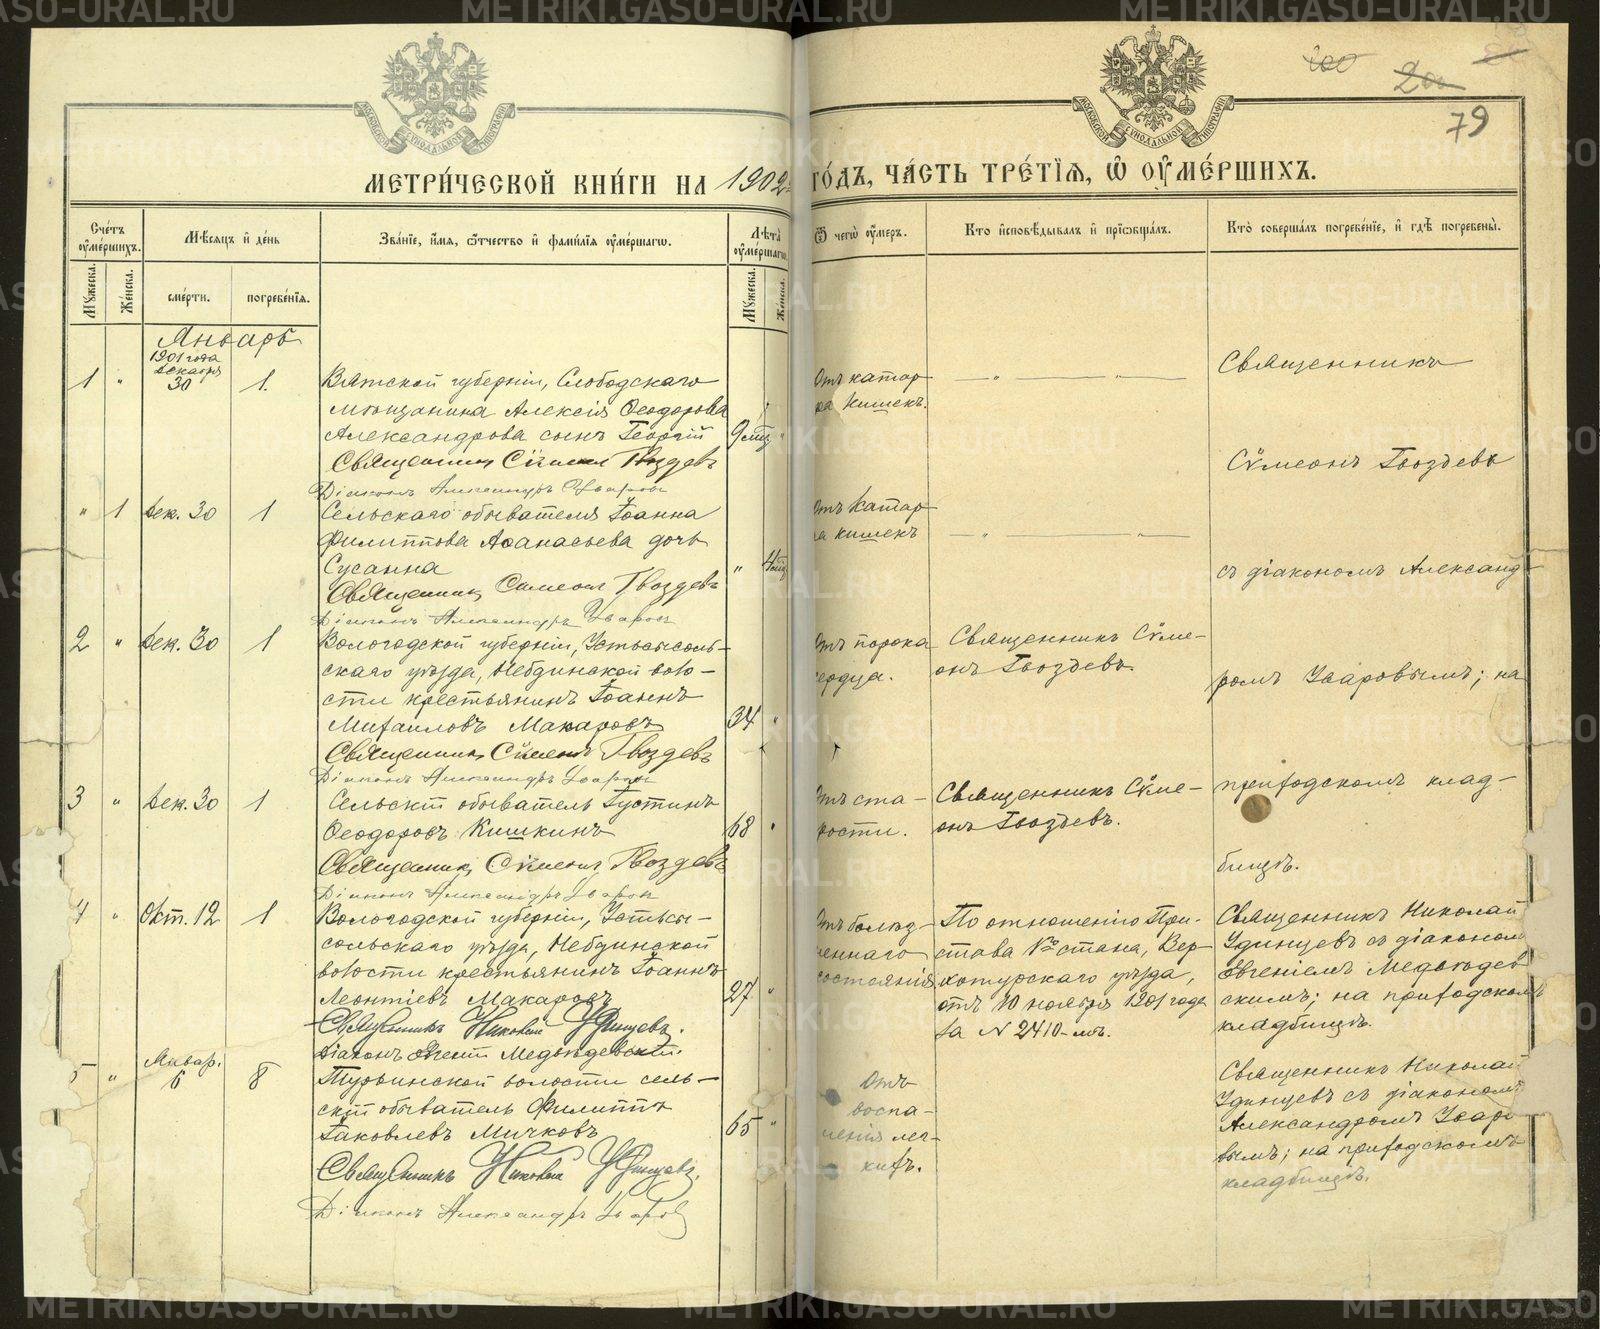 METRIKI.GASO-URAL.RU
100
20
79
МОСКОВСКОЙ СѴНОДАЛЬНОЙ ТИПОГРАФІИ
МОСКОВСКОЙ СѴНОДАЛЬНОЙ ТИПОГРАФІИ
МЕТРИ́ЧЕСКОЙ КНИ́ГИ НА 1902 ГО́ДЪ, ЧА́СТЬ ТРЕ́ТІѦ, Ѡ҆ ОУ҆МЕ́РШИХЪ.
Сче́тъ оу҆ме́ршихъ.
Мѣсѧцъ и҆ де́нь
Зва́ніе, и҆́мѧ, ѻ҆́тчество и҆ фами́лїѧ оу҆ме́ршагѡ.
Лѣта̀ оу҆ме́ршагѡ.
Ѿ чегѡ̀ оу҆́меръ.
Кто̀ и҆сповѣ́дывалъ и҆ прїѡбща́лъ.
Кто̀ соверша́лъ погребе́нїе, и҆ гдѣ̀ погребены̀.
Мꙋ́жеска.
Же́нска.
сме́рти.
погребе́нїѧ.
Мꙋ́жеска.
Же́нска.
Январь
1901 года
декабря
1 " 30 1.
Вятской губерніи, Слободскаго
мѣщанина Алексія Ѳеодорова
Александрова сынъ Георгій 9 мц "
Священникъ Сѵмеонъ Гвоздевъ
Діаконъ Александръ Уваровъ
Отъ катар-
ра кишекъ.
" 1 Дек. 30 1
Сельскаго обывателя Іоанна
Филиппова Аѳанасьева дочь
Сусанна " 4 мц
Священникъ Симеонъ Гвоздевъ
Діаконъ Александръ Уваровъ
Отъ катар-
ра кишекъ
2 " Дек. 30 1
Вологодской губерніи, Устьсысоль-
скаго уѣзда, Небдинской воло-
сти крестьянинъ Іоаннъ
Михаиловъ Макаровъ 34 "
Священникъ Сѵмеонъ Гвоздевъ
Діаконъ Александръ Уваровъ
Отъ порока
сердца.
Священникъ Сѵме-
онъ Гвоздевъ.
3 " Дек. 30 1
Сельскій обыватель Іустинъ
Ѳеодоровъ Кишкинъ 68 "
Священникъ Сѵмеонъ Гвоздевъ
Діаконъ Александръ Уваровъ
Отъ ста-
рости.
Священникъ Сѵме-
онъ Гвоздевъ.
Священникъ
Сѵмеонъ Гвоздевъ
съ діакономъ Александ-
ромъ Уваровымъ; на
приходскомъ клад-
бищѣ.
4 " Окт. 12 1
Вологодской губерніи, Устьсы-
сольскаго уѣзда, Небдинской
волости крестьянинъ Іоаннъ
Леонтіевъ Макаровъ 27 "
Священникъ Николай Удинцевъ.
Діаконъ Евгеній Медвѣдевскій.
Отъ болѣз-
неннаго
состоянія
По отношенію При-
става 1го стана, Вер-
хотурскаго уѣзда,
отъ 10 ноября 1901 года
за № 2410-мъ.
Священникъ Николай
Удинцевъ съ діакономъ
Евгеніемъ Медвѣдев
скимъ; на приходскомъ
кладбищѣ.
5 " Январ. 6 8
Турьинской волости сель-
скій обыватель Филиппъ
Іаковлевъ Мичковъ 65 "
Священникъ Николай Удинцевъ.
Діаконъ Александръ Уваровъ
Отъ
воспа-
ленія лег-
кихъ.
Священникъ Николай
Удинцевъ съ діакономъ
Александромъ Уваро
вымъ; на приходскомъ
кладбищѣ.